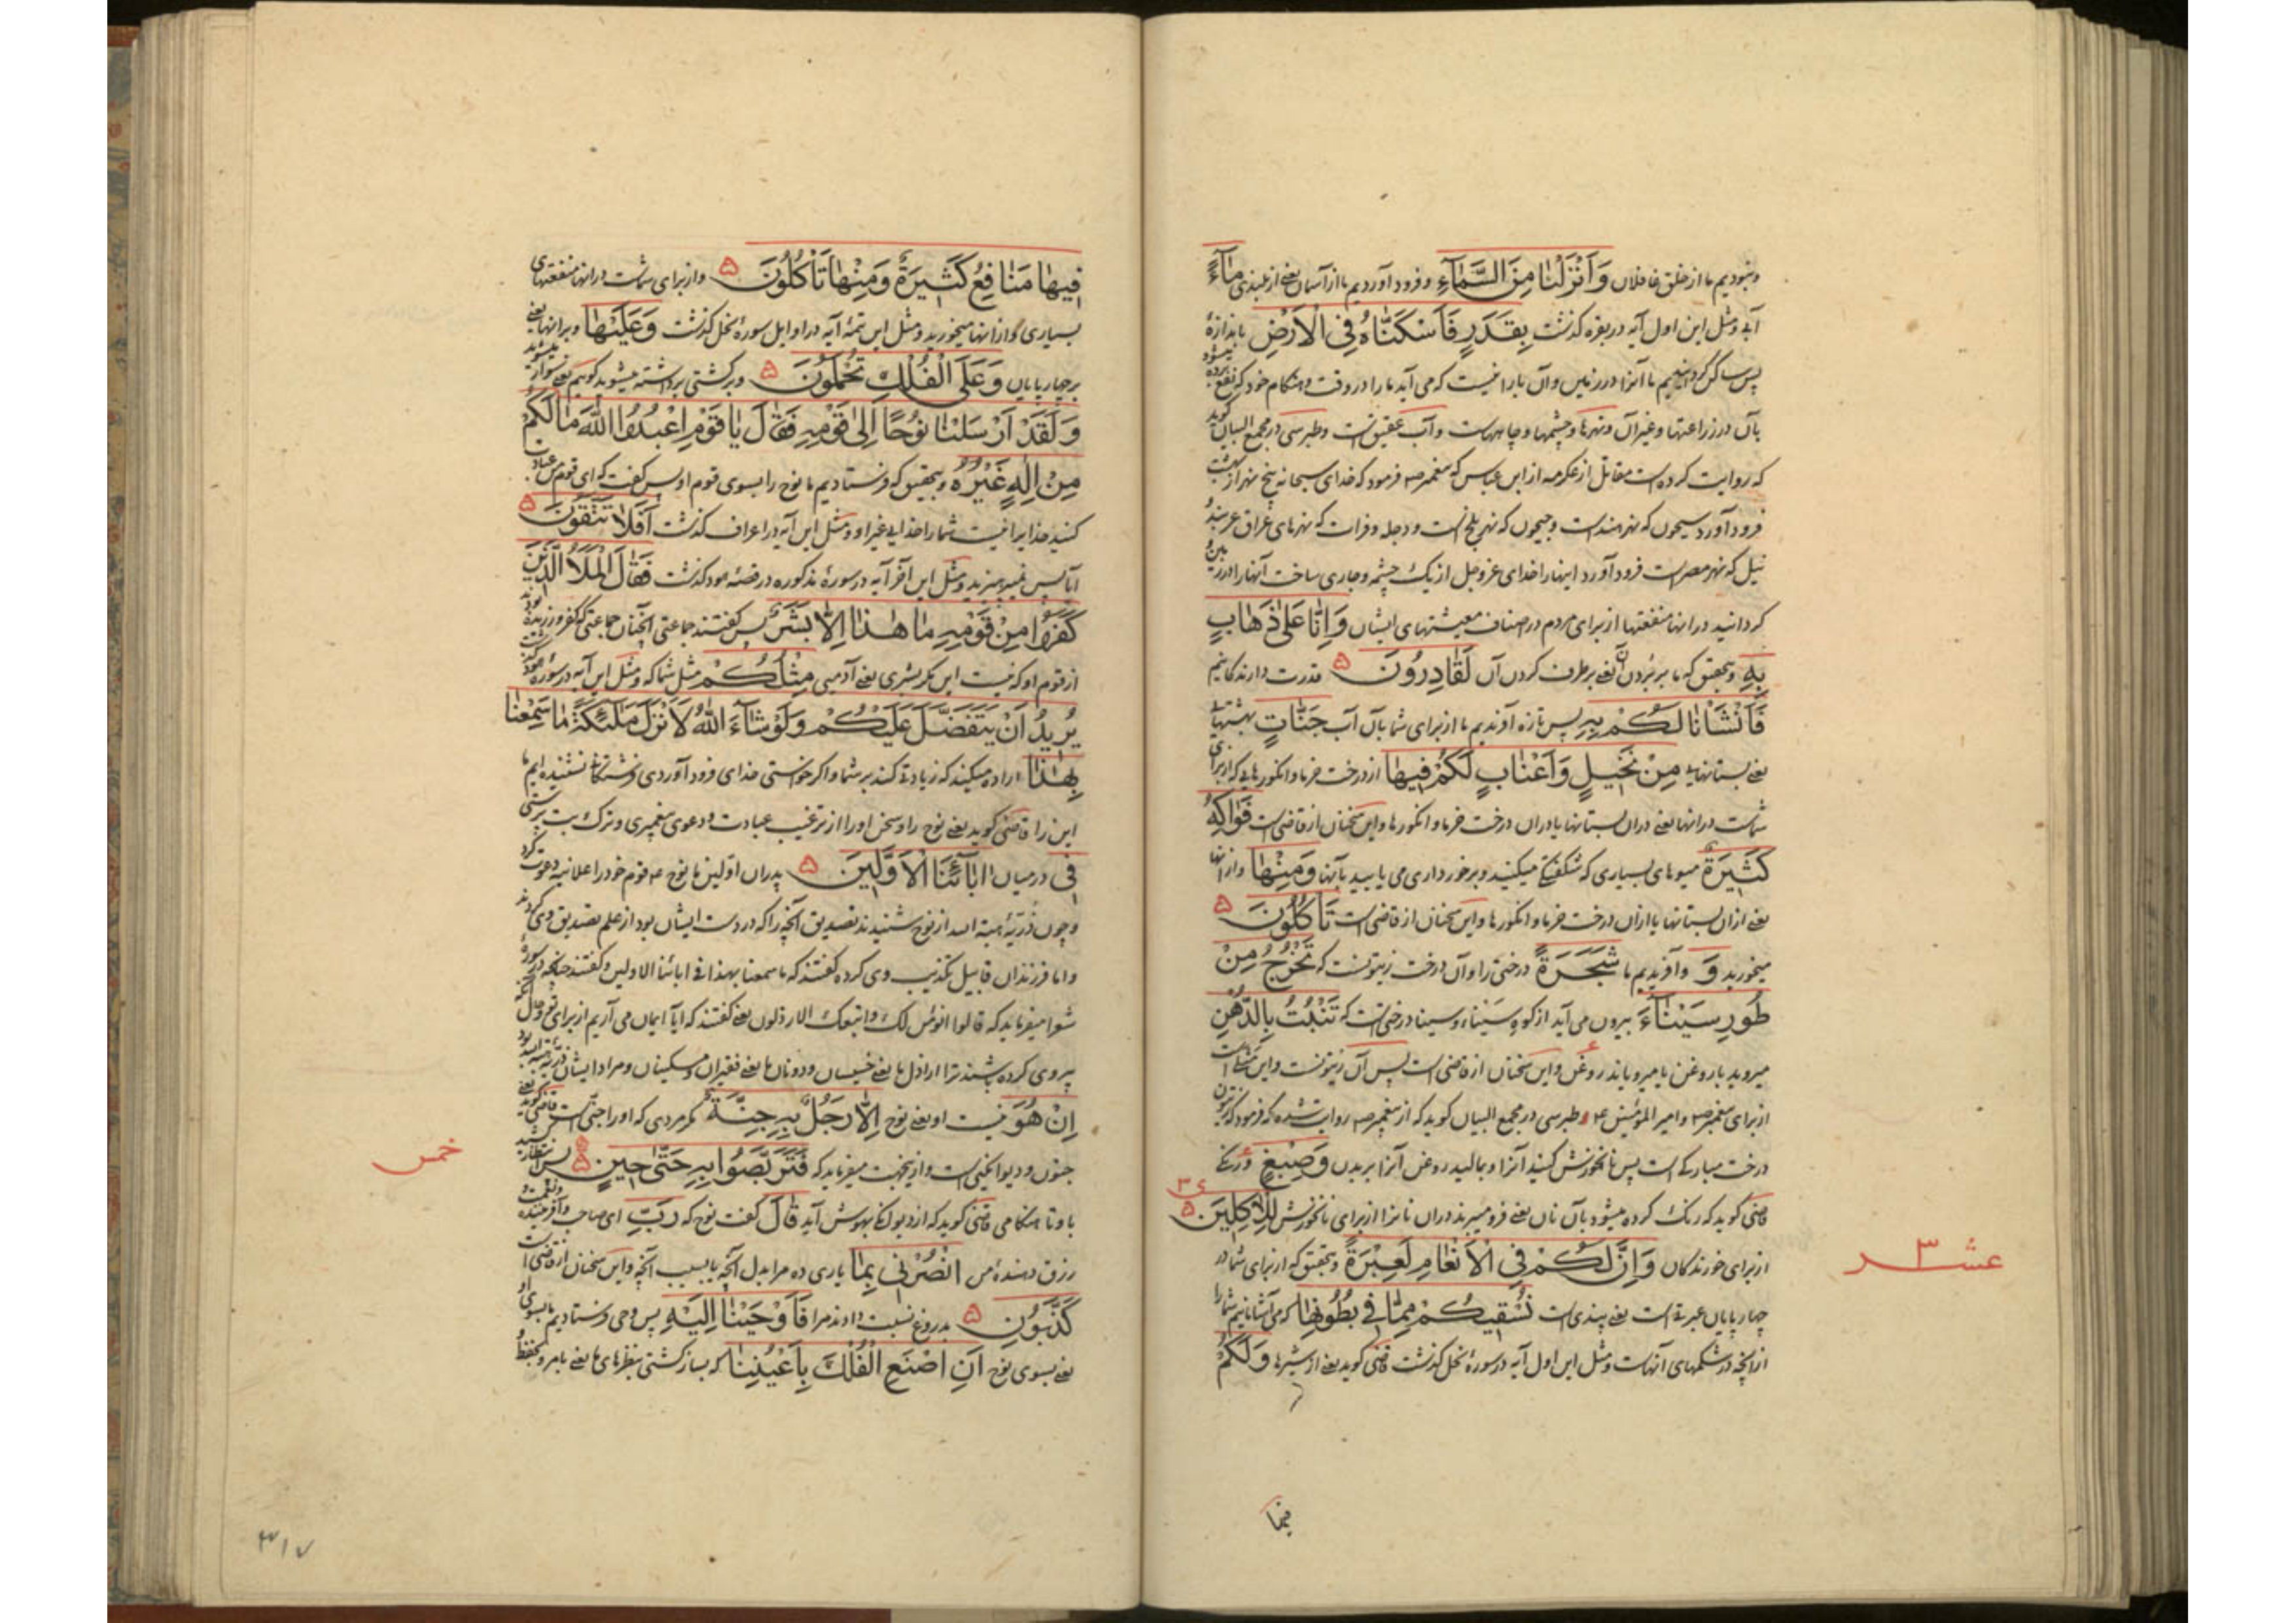 و نبودیم ما از خلق غافلان وَاَنْزَلْنٰا مِنَ السَّمٰآءِ و فرود آوردیم ما از آسمان یعنی از بلندی مٰآءً
آبی و مثل این اول آیه در بقره گذشت بِقَدَرٍ فَاَسْکَنّٰاهُ فِی الْاَرْضِ باندازهٔ
پس ساکن گردانیدیم ما آنرا در زمین و آن بارانیست که می آید ما را در وقت و هنگام خود که نفع برده میشود
بآن در زراعتها و غیر آن و نهرها و چشمها و چاههاست و آب عقیق است و طبرسی در مجمع البیان گوید
که روایت کرده است مقاتل از عکرمه از ابن عباس که پیغمبر ص فرمود که خدای سبحانه پنج نهر از بهشت
فرود آورد سیحون که نهر هند است و جیحون که نهر بلخ است و دجله و فرات که نهرهای عراق عرب‌اند و
نیل که نهر مصر است فرود آورد اینها را خدای عز و جل از یک چشمه و جاری ساخت آنها را در زمین و
گردانید در آنها منفعتها از برای مردم در اصناف معیشتهای ایشان وَاِنّٰا عَلیٰ ذَهٰابٍ
بِهِ و بتحقیق که ما بر بردن آن یعنی برطرف کردن آن لَقٰادِرُونَ ۵ قدرت دارندگانیم
فَاَنْشَاْنٰا لَکُمْ بِهِ پس تازه آوردیم ما از برای شما بآن آب جَنّٰاتٍ بهشتهائی
یعنی بستانهایی مِنْ نَخٖیلٍ وَاَعْنٰابٍ لَکُمْ فِیهٰا از درخت خرما و انگورهایی که از برای
شماست در آنها یعنی در آن بستانها یا در آن درخت خرما و انگورها و این سخنان از قاضی است فَوٰاکِهُ
کَثِیرَةٌ میوهای بسیاری که شگفتگی میکنید و برخورداری می یابید بآنها وَمِنْهٰا و از آنها
یعنی از آن بستانها یا از آن درخت خرما و انگورها و این سخنان از قاضی است تَاْکُلُونَ ۵
میخورید وَ و آفریدیم ما شَجَرَةً درختی را و آن درخت زیتونست که تَخْرُجُ مِنْ
طُورِ سَیْنٰآءَ بیرون می آید از کوه سَیْنآء و سینا درختی است که تَنْبُتُ بِالدُّهْنِ
میروید با روغن یا میرویاند روغن و این سخنان از قاضی است پس آن زیتونست و این مثل است
از برای پیغمبر ص و امیر المؤمنین ع و طبرسی در مجمع البیان گوید که از پیغمبر ص روایت شده که فرمود که زیتون
درخت مبارکی است پس نانخورش کنید آنرا و بمالید روغن آنرا بر بدن وَصِبْغٍ و رنگی
قاضی گوید که رنگ کرده میشود بآن نان یعنی فرو میبرند در آن نانرا از برای نانخورش لِلْاٰکِلٖینَ ۵
از برای خورندگان وَاِنَّ لَکُمْ فِی الْاَنْعٰامِ لَعِبْرَةً و بتحقیق که از برای شما در
چهار پایان عبرتی است یعنی پندی است نُسْقٖیکُمْ مِمّٰا فٖی بُطُونِهٰا که می آشامانیم شما را
از آنچه در شکمهای آنهاست و مثل این اول آیه در سورهٔ نحل گذشت قاضی گوید یعنی از شیرها وَلَکُمْ
عشر ۳
فیها
فِیهٰا مَنٰافِعُ کَثٖیرَةٌ وَمِنْهٰا تَاْکُلُونَ ۵ و از برای شماست در آنها منفعتهای
بسیاری و از آنها میخورید و مثل این تتمهٔ آیه در اوایل سورهٔ نحل گذشت وَعَلَیْهٰا و بر آنها یعنی
بر چهار پایان وَعَلَی الْفُلْکِ تُحْمَلُونَ ۵ و بر کشتی برداشته میشوید گوییم یعنی سوار میشوید
وَلَقَدْ اَرْسَلْنٰا نُوحًا اِلیٰ قَوْمِهٖ فَقٰالَ یٰا قَوْمِ اعْبُدُوا اللّٰهَ مٰا لَکُمْ
مِنْ اِلٰهٍ غَیْرُهُ و بتحقیق که فرستادیم ما نوح را بسوی قوم او پس گفت که ای قوم من عبادت
کنید خدایرا نیست شما را خدایی غیر او و مثل این آیه در اعراف گذشت اَفَلٰا تَتَّقُونَ ۵
آیا پس نمیپرهیزید و مثل این آخر آیه در سورهٔ مذکوره در قصهٔ هود گذشت فَقٰالَ الْمَلَاُ الَّذٖینَ
کَفَرُوا مِنْ قَوْمِهٖ مٰا هٰذٰا اِلّٰا بَشَرٌ پس گفتند جماعتی آنچنان جماعتی که کفر ورزیده بودند
از قوم او که نیست این مگر بشری یعنی آدمیی مِثْلُکُمْ مثل شما که و مثل این آیه در سورهٔ هود گذشت
یُرٖیدُ اَنْ یَتَفَضَّلَ عَلَیْکُمْ وَلَوْ شٰآءَ اللّٰهُ لَاَنْزَلَ مَلٰئِکَةً مٰا سَمِعْنٰا
بِهٰذٰا اراده میکند که زیادتی کند بر شما و اگر خواستی خدای فرود آوردی فرشتگان نشنیده ایم ما
این را قاضی گوید یعنی نوح را و سخن او را از ترغیب عبادت و دعوی پیغمبری و ترک بت پرستی
فٖی در میان اٰبٰآئِنَا الْاَوَّلٖینَ ۵ پدران اوّلین ما نوح ع قوم خود را علانیه دعوت کرد
و چون ذُرّیّهٔ هبة الله از نوح شنیدند تصدیق آنچه را که در دست ایشان بود از علم تصدیق وی کردند
و اما فرزندان قابیل تکذیب وی کرده گفتند که ما سمعنا بهذا فی ابائنا الاولین و گفتند چنانچه در سورهٔ
شعرا میفرماید که قالوا انؤمن لک و اتبعک الارذلون یعنی گفتند که آیا ایمان می آریم از برای تو و حال آنکه
پیروی کرده باشند ترا اراذل ها یعنی خسیسان و دونان ها یعنی فقیران و مسکینان و مراد ایشان ذریّهٔ هبة الله بود
اِنْ هُوَ نیست او یعنی نوح اِلّٰا رَجُلٌ بِهٖ جِنَّةٌ مگر مردی که او را جنّی است قاضی گوید یعنی
جنون و دیوانگیی است و از اینجهت میفرماید که فَتَرَبَّصُوا بِهٖ حَتّٰی حٖینٍ ۵ پس انتظار کشید
با او تا هنگامی قاضی گوید که از دیوانگی بهوش آید قٰالَ گفت نوح که رَبِّ ای صاحب و آفریننده و نعمت و
رزق دهندهٔ من انْصُرْنٖی بِمٰا یاری ده مرا بدل آنچه یا بسبب آنچه و این سخنان از قاضی است
کَذَّبُونِ ۵ بدروغ نسبت دادند مرا فَاَوْحَیْنٰا اِلَیْهِ پس وحی فرستادیم ما بسوی او
یعنی بسوی نوح اَنِ اصْنَعِ الْفُلْکَ بِاَعْیُنِنٰا که بساز کشتی بنظرهای ما یعنی بامر و بحفظ
خمس
۳۱۷